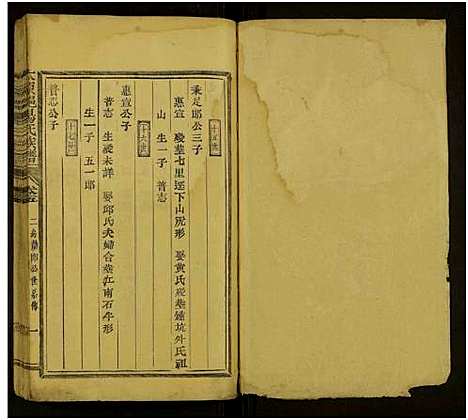 十五世
秉足郎公三子
惠宣 歿葬七里逕下山虎形 娶黃氏歿葬鍾坑外氏祖
山 生一子 普志
十六世
惠宣公子
普志 生歿未詳 娶邱氏夫婦合葬江南石牛形
生一子 五一郎
十七世
普志公子
楊氏族譜
世系傳
一